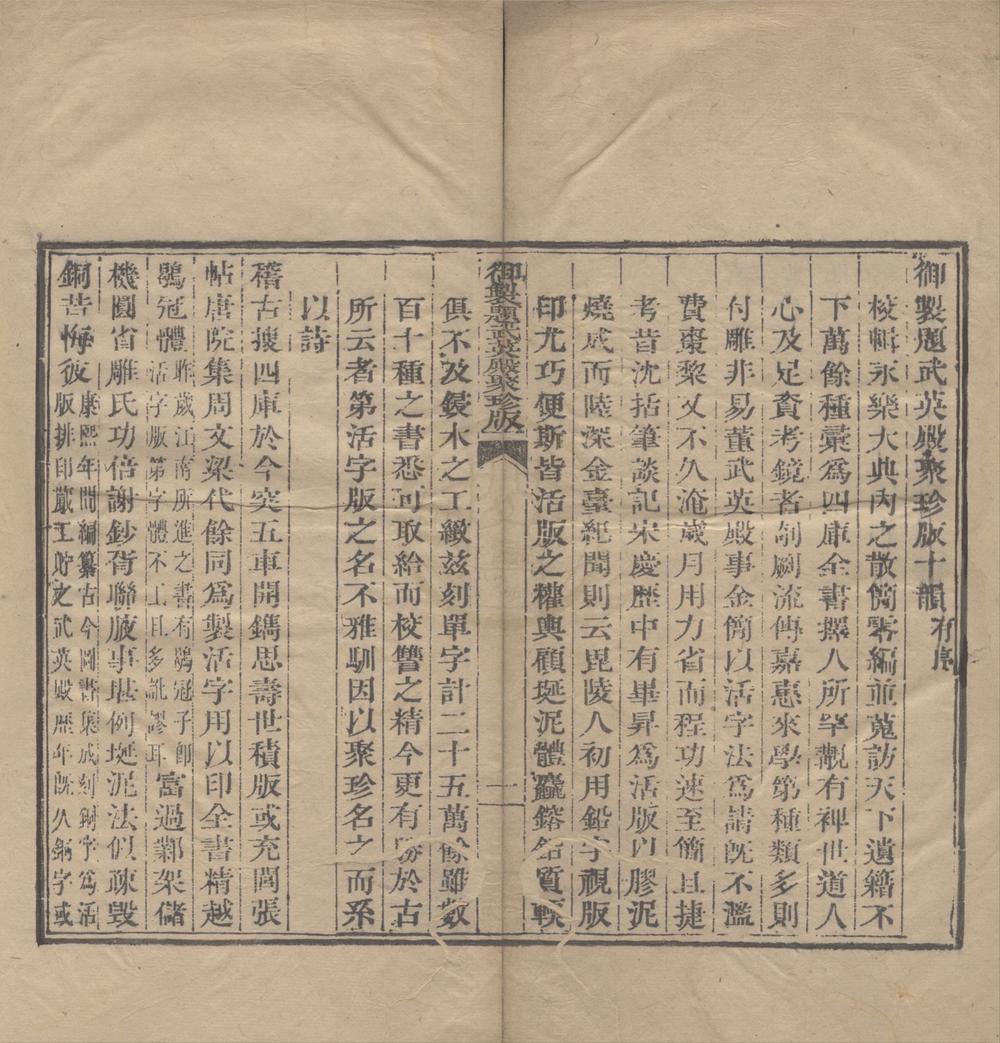 御製題武英殿聚珍版十韻有序
校輯永樂大典內之散簡零編並蒐訪天下遺籍不
下萬餘種彙爲四庫全書擇人所罕覯有裨世道人
心及足資考鏡者剞劂流傳嘉惠來學第種類多則
付雕非易董武英殿事金簡以活字法爲請旣不濫
費棗棃又不久淹歲月用力省而程功速至簡且捷
考昔沈括筆談記宋慶歷中有畢昇爲活版以膠泥
燒成而陸深金臺紀聞則云毘陵人初用鉛字視版
印尤巧便斯皆活版之權輿顧埏泥體麤鎔鉛質輭
御製題武英殿聚珍版
一
俱不及鋟木之工緻茲刻單字計二十五萬餘雖數
百十種之書悉可取給而校讐之精今更有勝於古
所云者第活字版之名不雅馴因以聚珍名之而系
以詩
稽古搜四庫於今突五車開鐫思壽世積版或充閭張
帖唐院集周文梁代餘同爲製活字用以印全書精越
鶡冠體昨歲江南所進之書有鶡冠子卽活字版第字體不工且多訛謬耳富過鄴架儲
機圓省雕氏功倍謝鈔胥聯腋事堪例埏泥法似疎毀
銅昔悔彼康熙年間編纂古今圖書集成刻銅字爲活版排印蕆工貯之武英殿歷年旣久銅字或